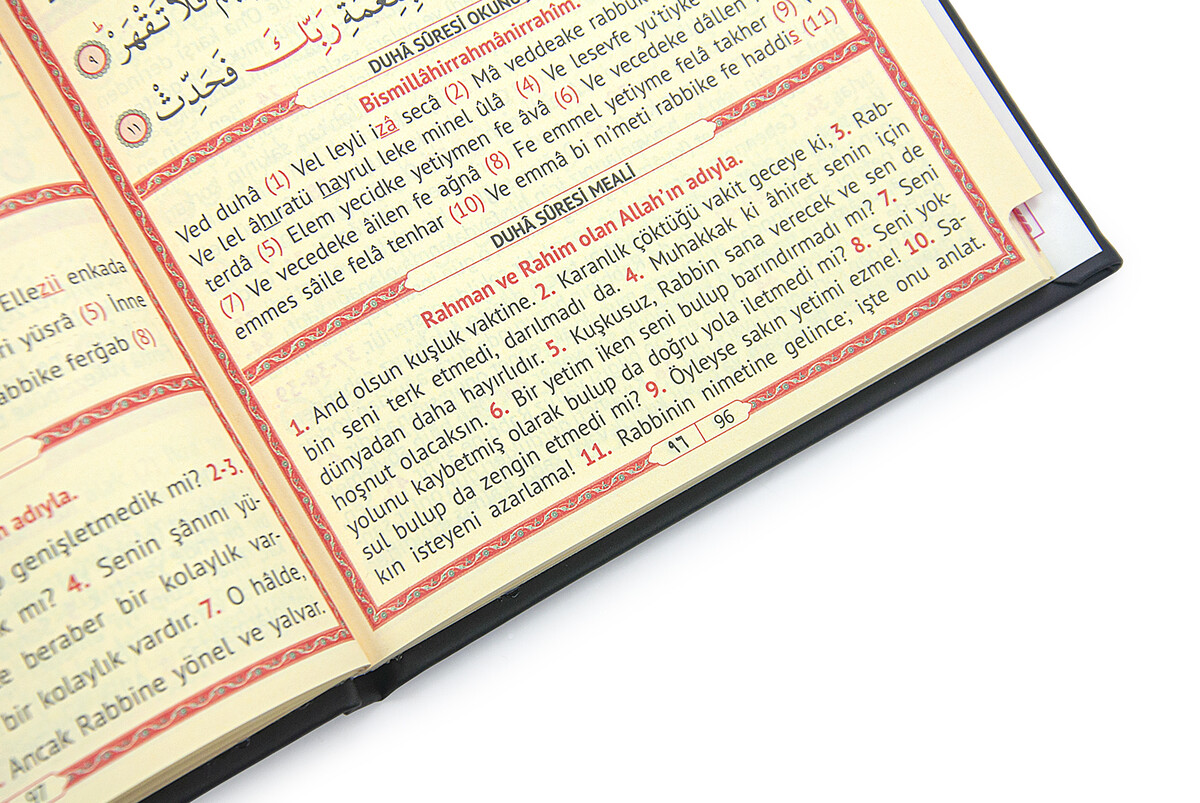 فَلَا تَقْهَرْ ٩
بِنِعْمَةِ رَبِّكَ فَحَدِّثْ ١١
DUHÂ SÛRESİ OKUNU
Bismillâhirrahmânirrahîm.
Ved duhâ (1) Vel leyli izâ secâ (2) Mâ veddeake rabbuk
Ve lel âhıratü hayrul leke minel ûlâ (4) Ve lesevfe yu'tiyke
terdâ (5) Elem yecidke yetiymen fe âvâ (6) Ve vecedeke dâllen
(7) Ve vecedeke âilen fe ağnâ (8) Fe emmel yetiyme felâ takher (9)
emmes sâile felâ tenhar (10) Ve emmâ bi ni'meti rabbike fe haddis (11)
DUHÂ SÛRESİ MEALİ
Rahman ve Rahim olan Allah'ın adıyla.
1. And olsun kuşluk vaktine. 2. Karanlık çöktüğü vakit geceye ki, 3. Rab-
bin seni terk etmedi, darılmadı da. 4. Muhakkak ki âhiret senin için
dünyadan daha hayırlıdır. 5. Kuşkusuz, Rabbin sana verecek ve sen de
hoşnut olacaksın. 6. Bir yetim iken seni bulup barındırmadı mı? 7. Seni
yolunu kaybetmiş olarak bulup da doğru yola iletmedi mi? 8. Seni yok-
sul bulup da zengin etmedi mi? 9. Öyleyse sakın yetimi ezme! 10. Sa-
kın isteyeni azarlama! 11. Rabbinin nimetine gelince; işte onu anlat.
٩٦ | 96
Ellezii enkada
yüsrâ (5) İnne
abbike ferğab (8)
adıyla.
genişletmedik mi? 2-3.
mı? 4. Senin şânını yü-
beraber bir kolaylık var-
bir kolaylık vardır. 7. O hâlde,
Ancak Rabbine yönel ve yalvar.
97